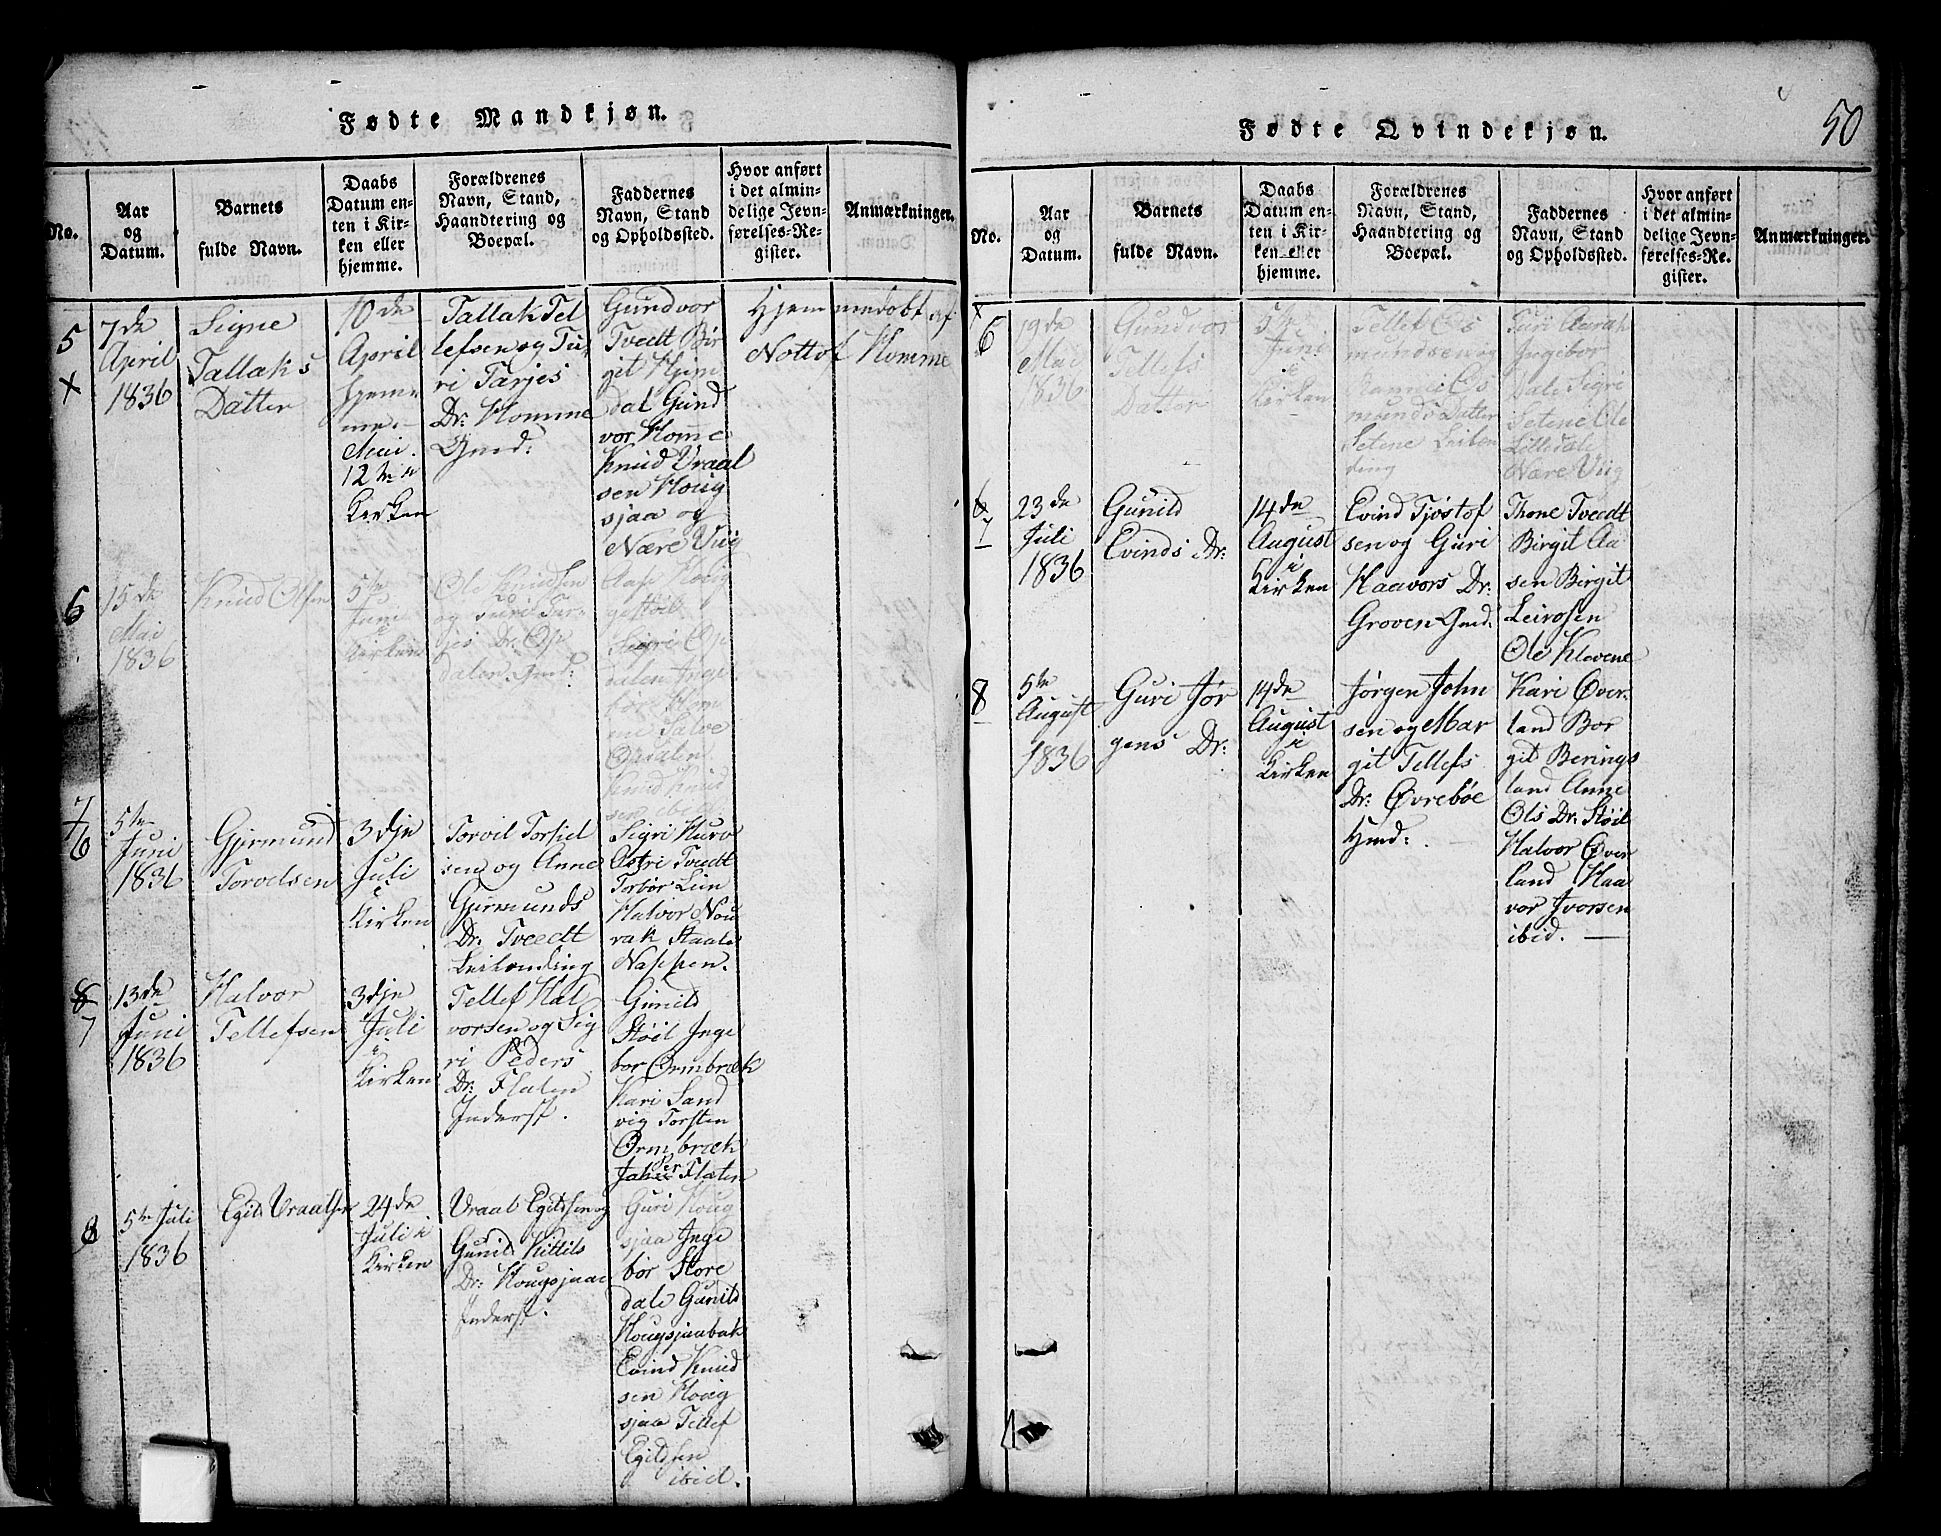 Fødte Mandkjøn.
No.
Aar
og
Datum.
Barnets
fulde Navn.
Daabs
Datum en-
ten i Kir-
ken eller
hjemme.
Forældrenes
Navn, Stand,
Haandtering og
Boepæl.
Faddernes
Navn, Stand
og Opholdssted.
Hvor anført
i det almin-
delige Jevn-
førelses-Re-
gister.
Anmærkninger.
5
x
7de
April
1836
Signe
Tallaks
Datter
10de
April
hjem-
me.
Mai.
12te
Kirken
Tallak Tel
lefsen og Tu-
ri Tarjes
Dr: Homme
Gmd:
Gundvor
Tvedt Bir
git Hjem
dal Gund
vor Homme
Knud Vraal
sen Houg
sjaa og
Nære Viig
Hjemmedøbt af
Nottof Homme
6
15de
Mai
1836
Knud Olsen
5te
Juni
i
Kirken
Ole Knudsen
og Turi Tar-
jes Dr. Op
dalen Gmd:
Aase Houg
gestøil
Sigri Op
dalen Inge
bør Hom
me Salve
Opdalen
Knud Knud
sen ibid
7
6
5te
Juni
1836
Gjermund
Torvelsen
3dje
Juli
i
Kirken
Torvil Torsiel
sen og Anne
Gjermunds
Dr. Tveedt
Leilending
Sigri Kurv
Astri Tvedt
Torbør Lein
Halvor Nou
rak Staale
Nappen.
8
7
13de
Juni
1836
Halvor
Tellefsen
3dje
Juli
i
Kirken
Tellef Hal
vorsen og Sig
ri Peders
Dr: Flaten
Inderst.
Gunild
Støil Inge
bor Ormbræk
Kari Sand
vig Torsten
Ormbræk
Flaten
8
5te Juli
1836
Egild Vraalsen
24de
Juli i
Kirken
Vraal Egildsen og
Gunild Kittils
Dr: Hougsjaae
Inderst.
Guri Houg
sjaa Inge
bør Store
dale Gunild
Hougsjaabak
Evind Knud
sen Houg
sjaa Tellef
Egildsen
ibid.
50
Fødte Qvindekjøn.
No.
Aar
og
Datum.
Barnets
fulde Navn.
Daabs
Datum en-
ten i Kir-
ken eller
hjemme.
Forældrenes
Navn, Stand,
Haandtering og
Boepæl.
Faddernes
Navn, Stand
og Opholdssted.
Hvor anført
i det almin-
delige Jevn-
førelses-Re-
gister.
Anmærkninger.
x
6
19de
Mai
1836
Gundvor
Tellefs
Datter
5te
Juni
i
Kirken
Tellef Os
mundsen og
Os
munds Datter
Setene Leilen
ding
Turi Aarak
Ingebor
Dale Sigri
Setene Ole
Lilledale
Nære Viig
6
7
23de
Juli
1836
Gunild
Evinds Dr:
14de
August
i
Kirken
Evind Tjøstof
sen og Guri
Haavors Dr:
Groven Gmd.
Thone Tveedt
Birgit Aa
sen Birgit
Leirosen
Ole Klevene
8
5te
August
1836
Guri Jør
gens Dr:
14de
August
i
Kirken
Jørgen John
sen og Mar
git Tellefs
Dr: Øvrebøe
Hmd:
Kari Øver-
land Bor
git Berings
land Anne
Ols Dr. Støil
Halvor Øver
land Haa
vor Ivorsen
ibid.